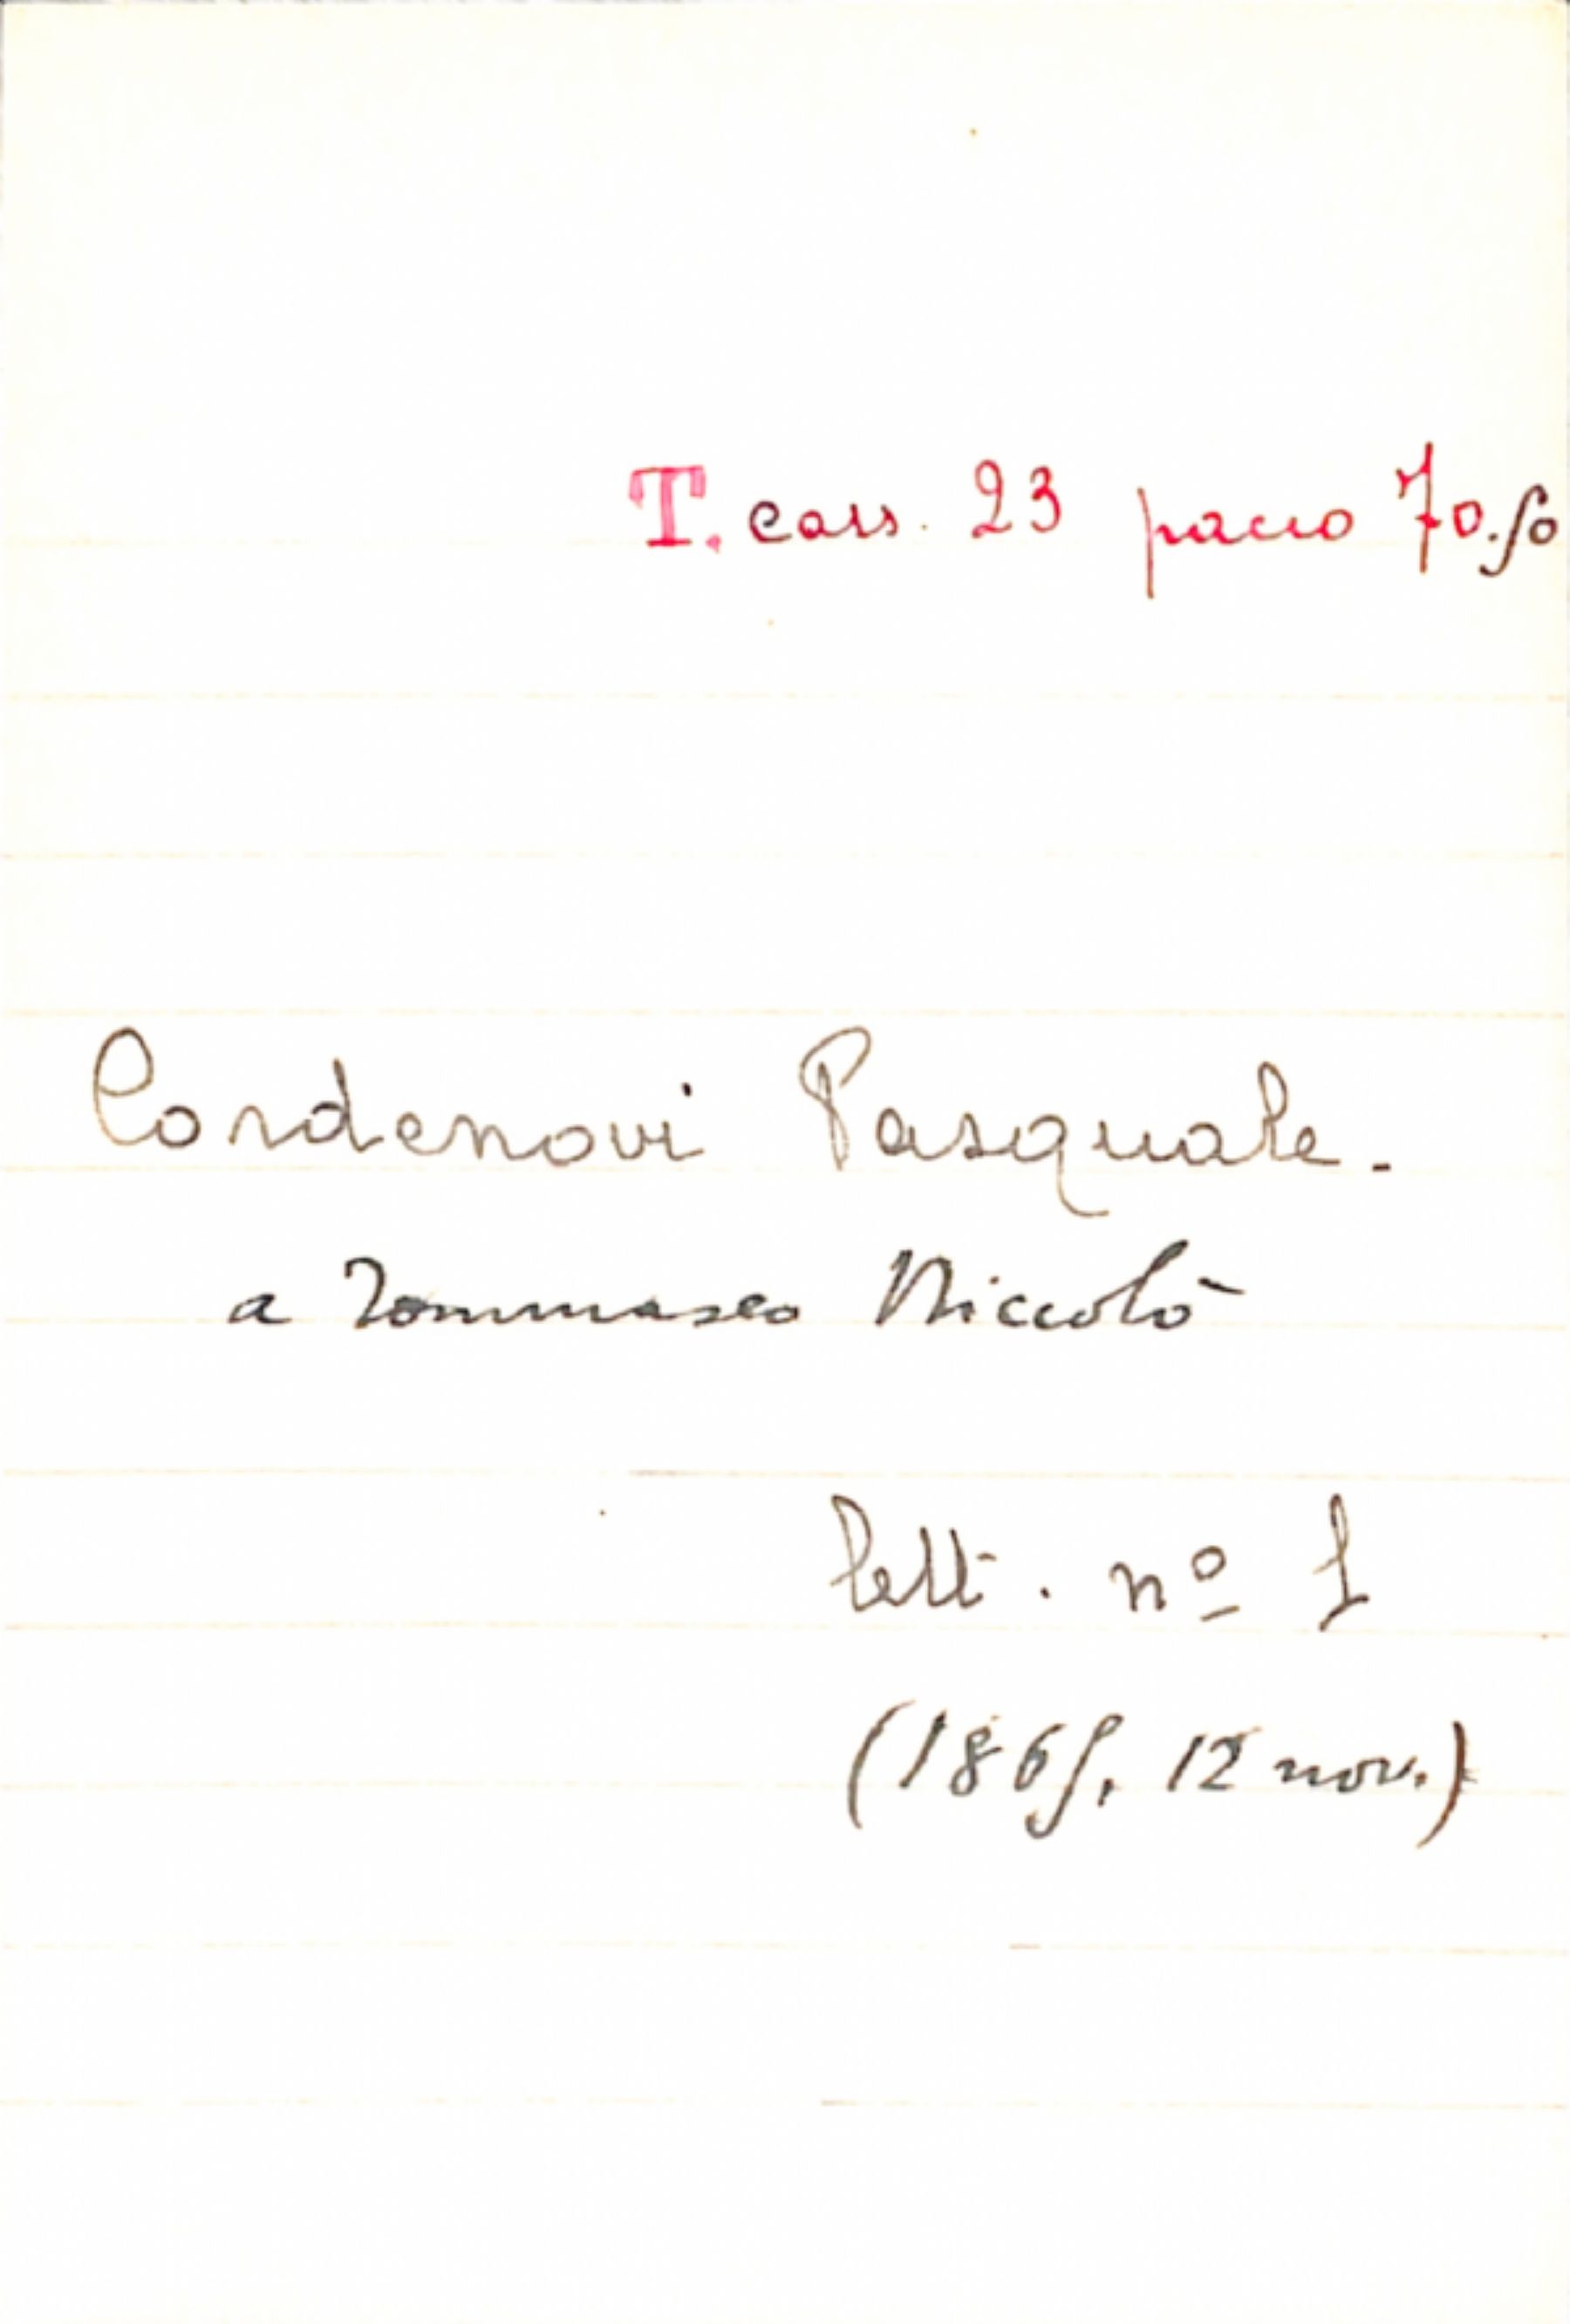 T. cass. 23 pacco 70.50
Cordenovi Pasquale.
a Tommaseo Niccolò
lett. nº 1
(1865, 12 nov.)